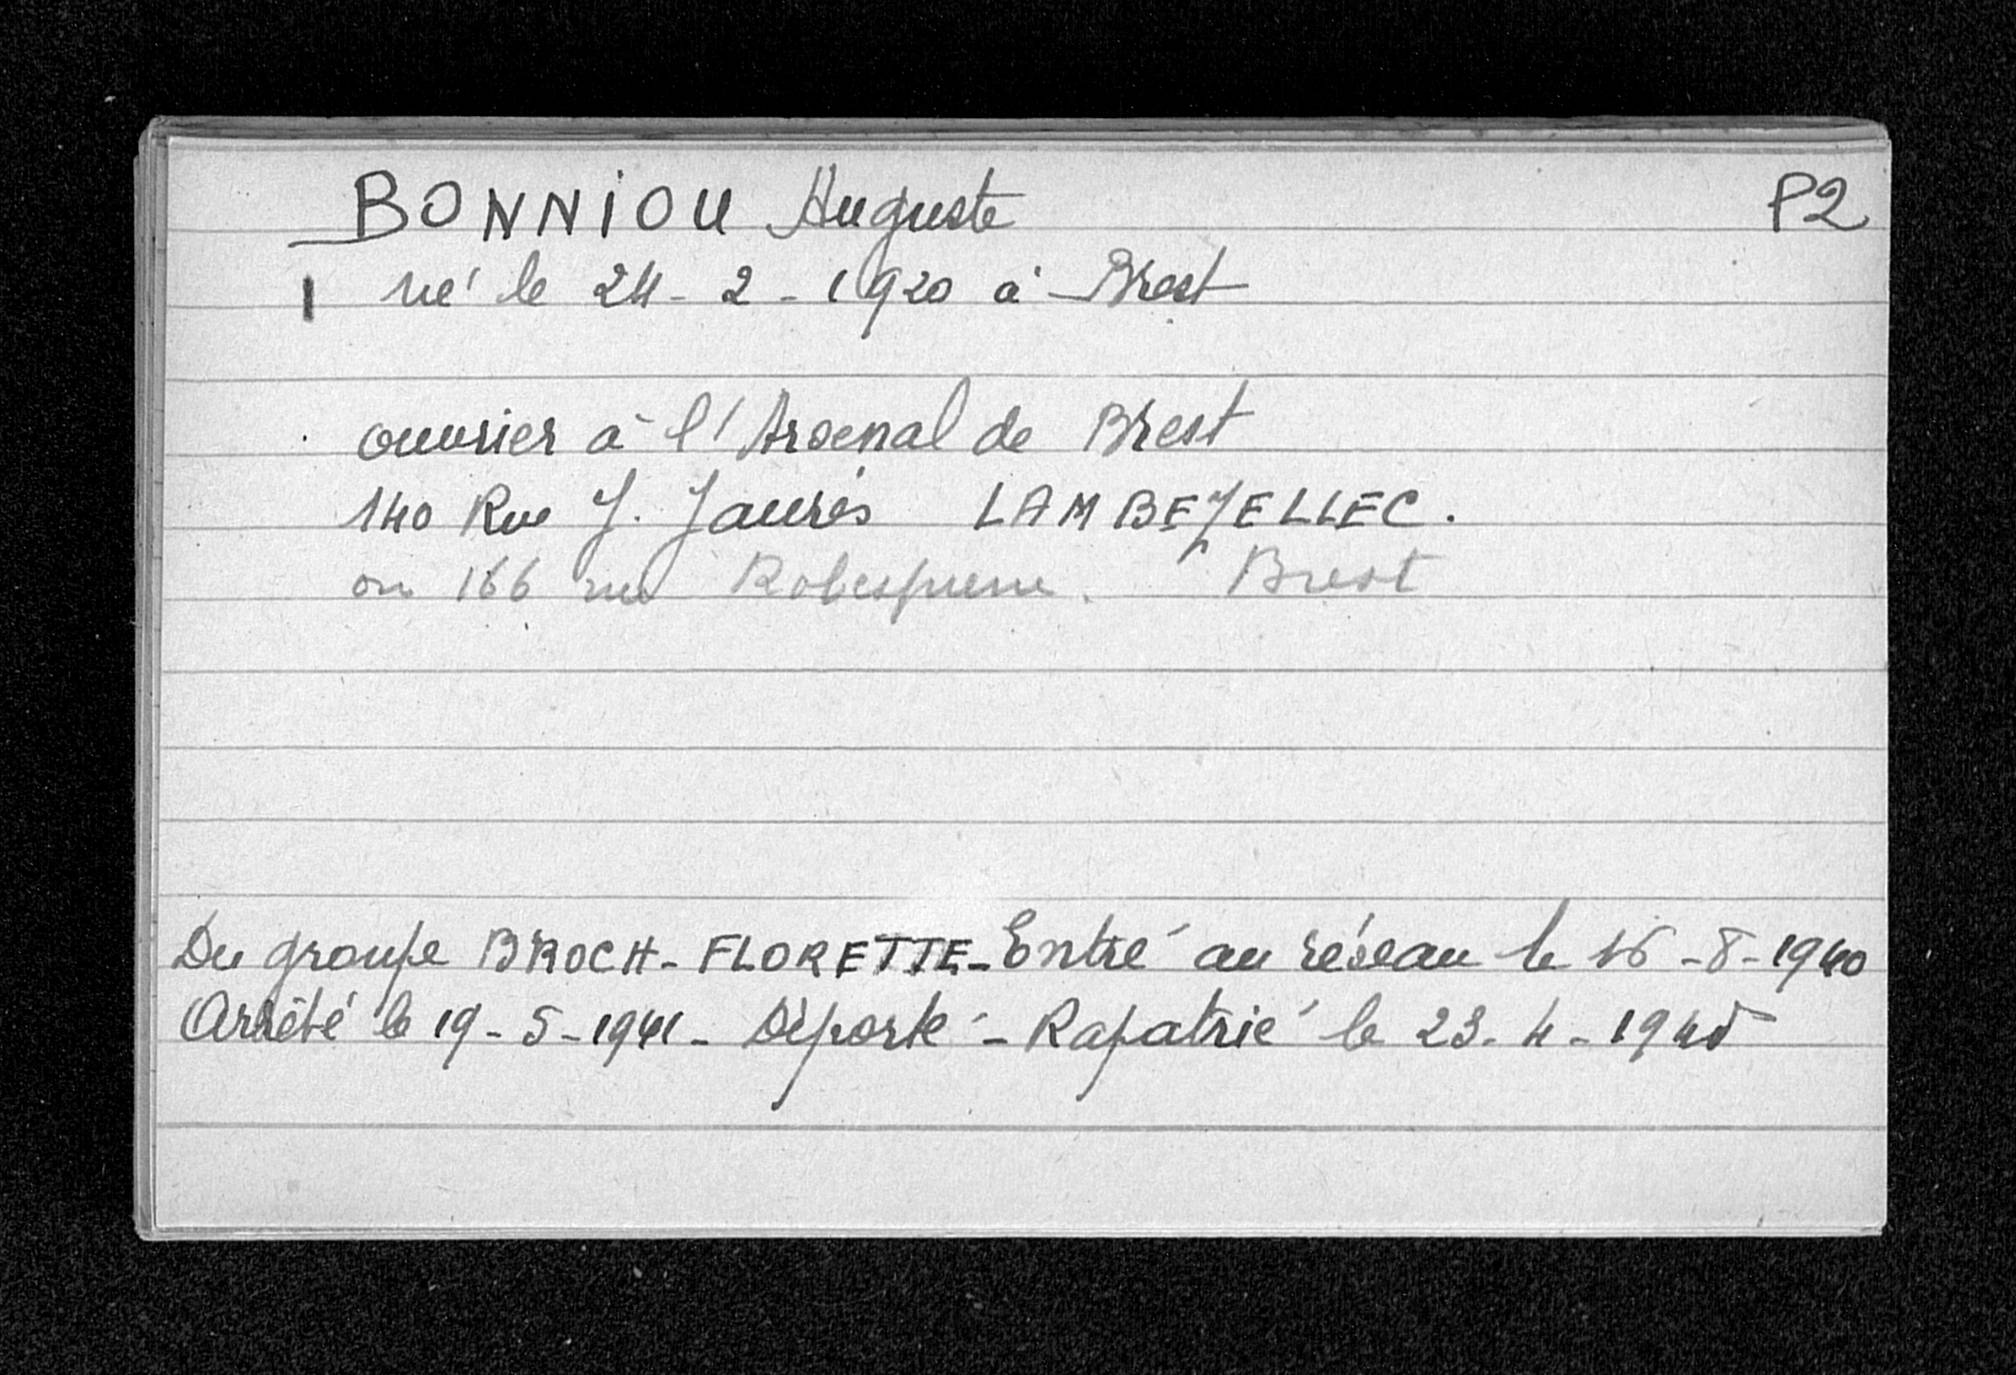 BONNIOU Auguste P2
né le 24 - 2 - 1920 à Brest
ouvrier à l'Arsenal de Brest
140 Rue J. Jaurès LAMBEZELLEC.
ou 166 rue Robespierre. Brest
Du groupe BROCH - FLORETTE - Entré au réseau le 16 - 8 - 1940
Arrêté le 19 - 5 - 1941 - Déporté - Rapatrié le 23 - 4 - 1945